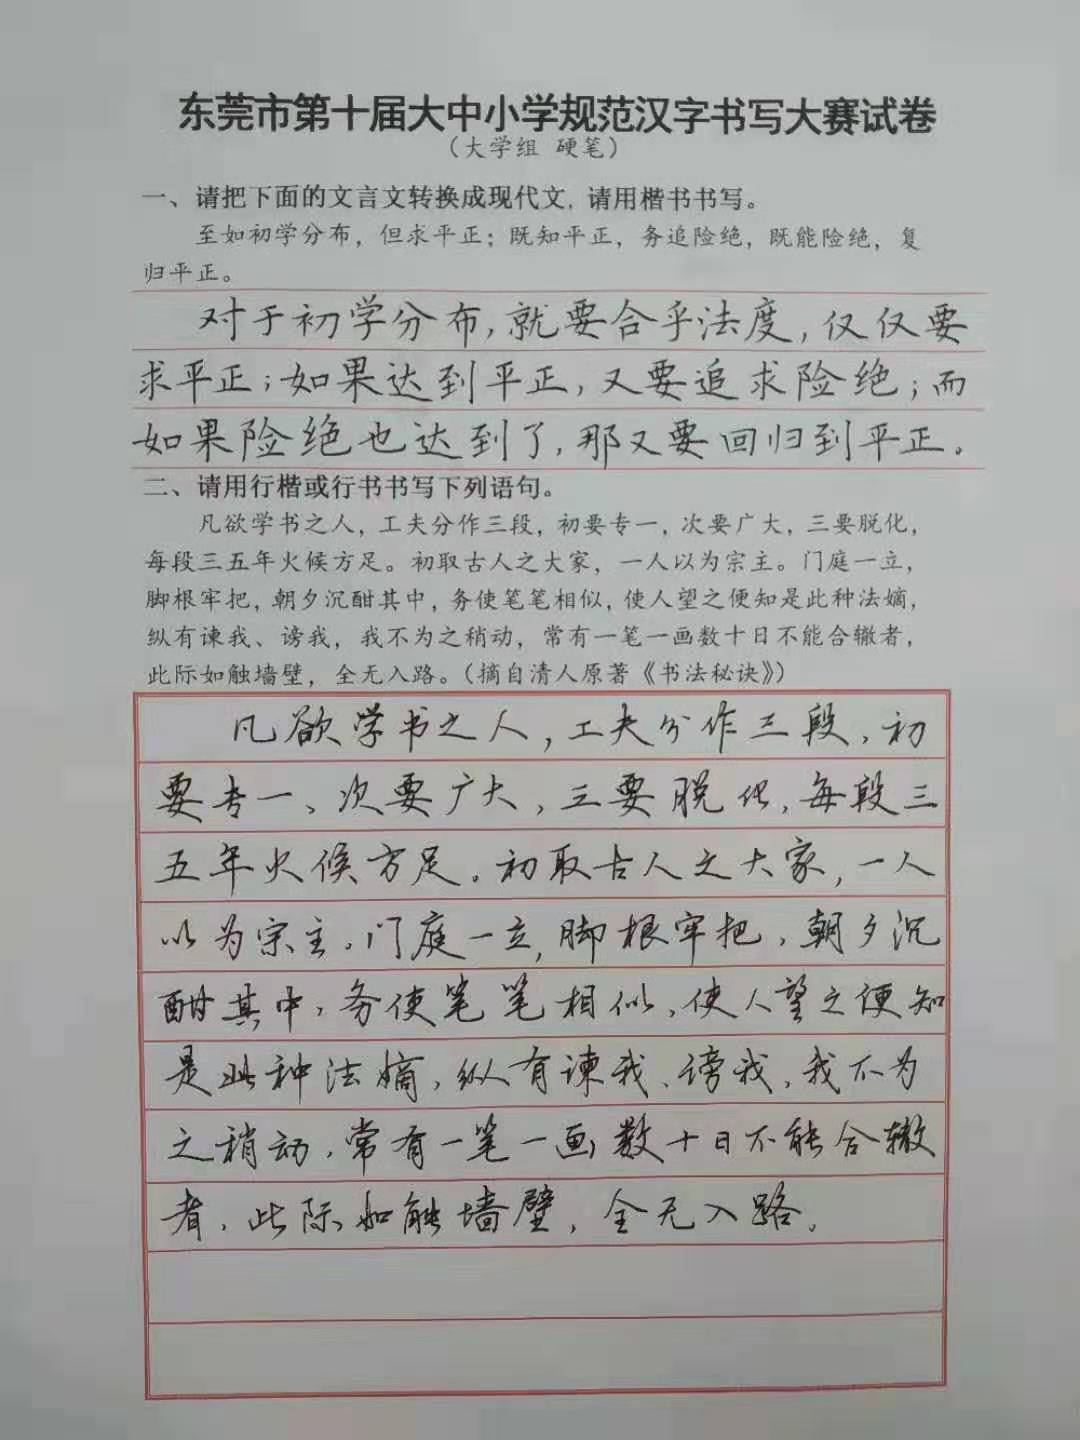 东莞市第十届大中小学规范汉字书写大赛试卷
（大学组 硬笔）
一、请把下面的文言文转换成现代文，请用楷书书写。
至如初学分布，但求平正；既知平正，务追险绝，既能险绝，复
归平正。
对于初学分布，就要合乎法度，仅仅要
求平正；如果达到平正，又要追求险绝；而
如果险绝也达到了，那又要回归到平正。
二、请用行楷或行书书写下列语句。
凡欲学书之人，工夫分作三段，初要专一，次要广大，三要脱化，
每段三五年火候方足。初取古人之大家，一人以为宗主。门庭一立，
脚根牢把，朝夕沉酣其中，务使笔笔相似，使人望之便知是此种法嫡，
纵有谏我、谤我，我不为之稍动，常有一笔一画数十日不能合辙者，
此际如触墙壁，全无入路。（摘自清人原著《书法秘诀》）
凡欲学书之人，工夫分作三段，初
要专一、次要广大，三要脱化，每段三
五年火候方足。初取古人之大家，一人
以为宗主。门庭一立，脚根牢把，朝夕沉
酣其中，务使笔笔相似，使人望之便知
是此种法嫡，纵有谏我、谤我，我不为
之稍动，常有一笔一画数十日不能合辙
者，此际如触墙壁，全无入路。